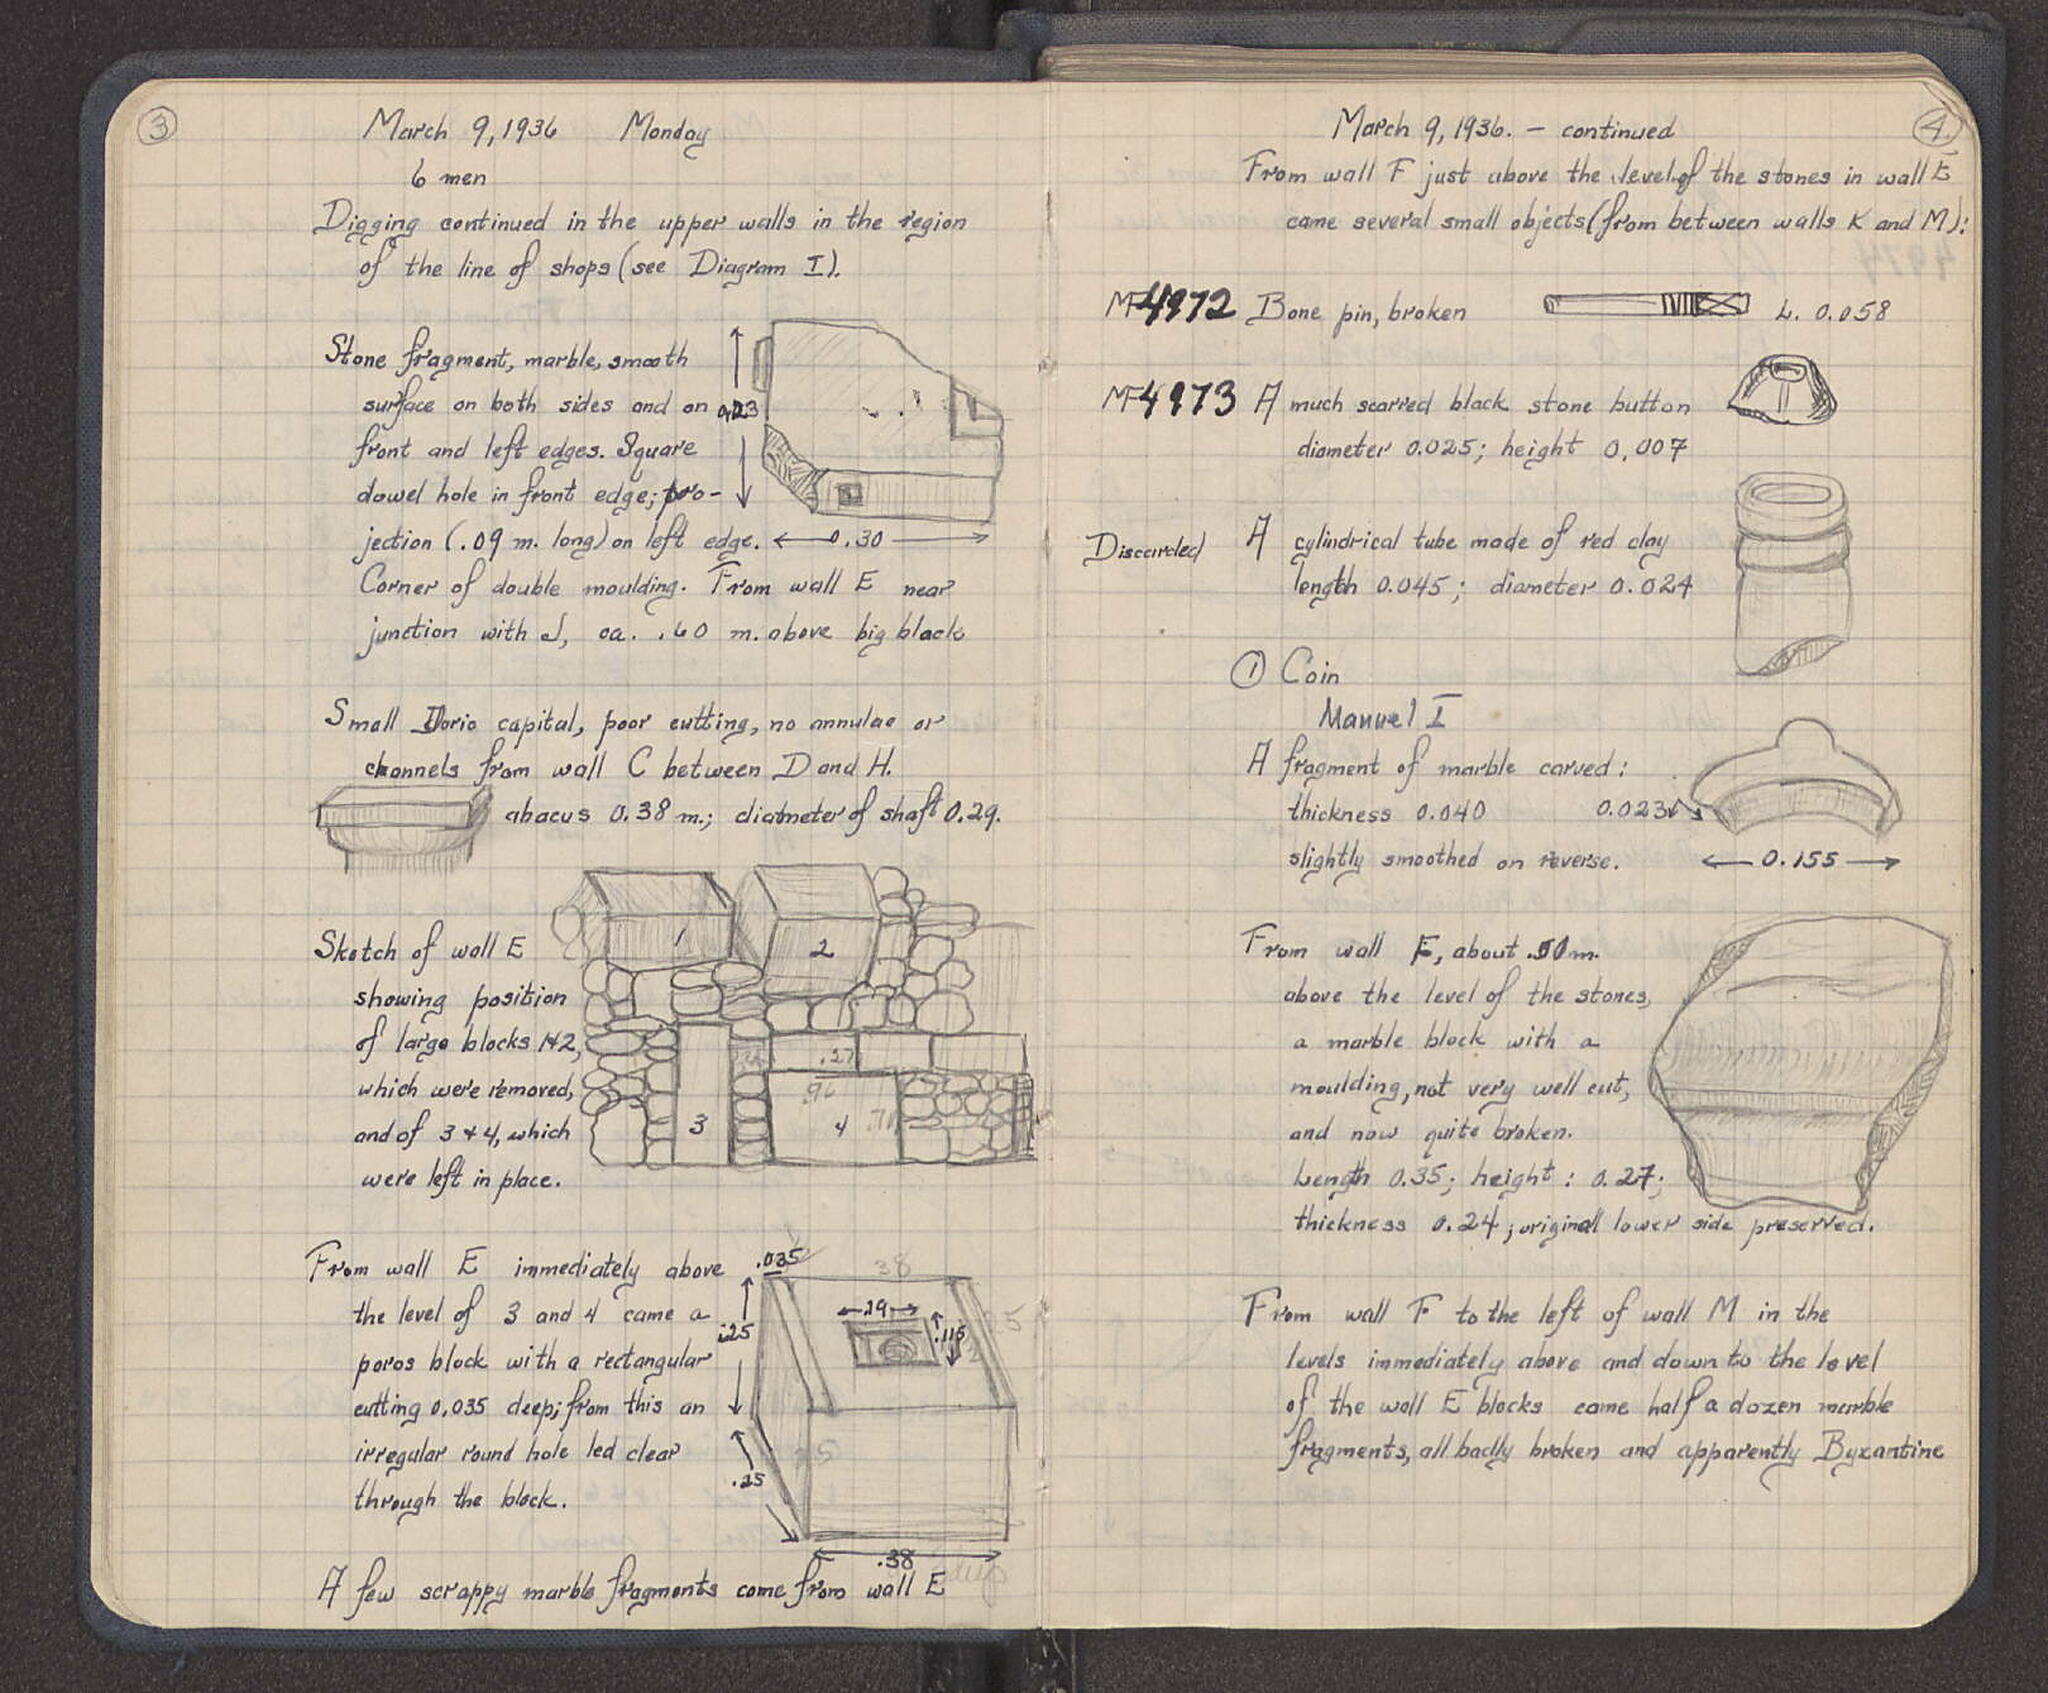 3
March 9, 1936 Monday
6 men
Digging continued in the upper walls in the region
of the line of shops (see Diagram I).
Stone fragment, marble, smooth
surface on both sides and on
0.23
front and left edges. Square
dowel hole in front edge; pro-
jection (.09 m. long) on left edge.
0.30
Corner of double moulding. From wall E near
junction with J, ca. .60 m. above big black
Small Doric capital, poor cutting, no annulae or
channels from wall C between D and H.
abacus 0.38 m.; diameter of shaft 0.29.
Sketch of wall E
showing position
of large blocks 1+2,
which were removed,
and of 3 + 4, which
were left in place.
1
2
.27
.96
3
4
.71
From wall E immediately above
the level of 3 and 4 came a
poros block with a rectangular
cutting 0.035 deep; from this an
irregular round hole led clear
through the block.
.035
38
.19
.115
.25
.25
.38
A few scrappy marble fragments come from wall E
4
March 9, 1936. - continued
From wall F just above the level of the stones in wall E
came several small objects (from between walls K and M):
MF 4972 Bone pin, broken L. 0.058
MF 4973 A much scarred black stone button
diameter 0.025; height 0.007
Discarded A cylindrical tube made of red clay
length 0.045; diameter 0.024
① Coin
Manuel I
A fragment of marble carved:
thickness 0.040 0.023
slightly smoothed on reverse.
0.155
From wall F, about .50 m.
above the level of the stones,
a marble block with a
moulding, not very well cut,
and now quite broken.
Length 0.35; height: 0.27;
thickness 0.24; original lower side preserved.
From wall F to the left of wall M in the
levels immediately above and down to the level
of the wall E blocks come half a dozen marble
fragments, all badly broken and apparently Byzantine